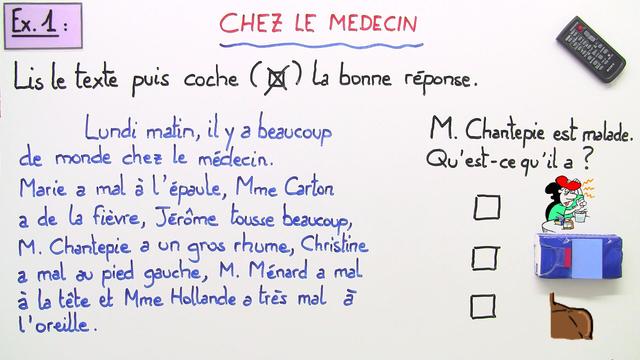 Ex. 1 :
CHEZ LE MEDECIN
Lis le texte puis coche (☒) la bonne réponse.
Lundi matin, il y a beaucoup
de monde chez le médecin.
Marie a mal à l'épaule, Mme Carton
a de la fièvre, Jérôme tousse beaucoup,
M. Chantepie a un gros rhume, Christine
a mal au pied gauche, M. Ménard a mal
à la tête et Mme Hollande a très mal à
l'oreille.
M. Chantepie est malade.
Qu'est-ce qu'il a ?